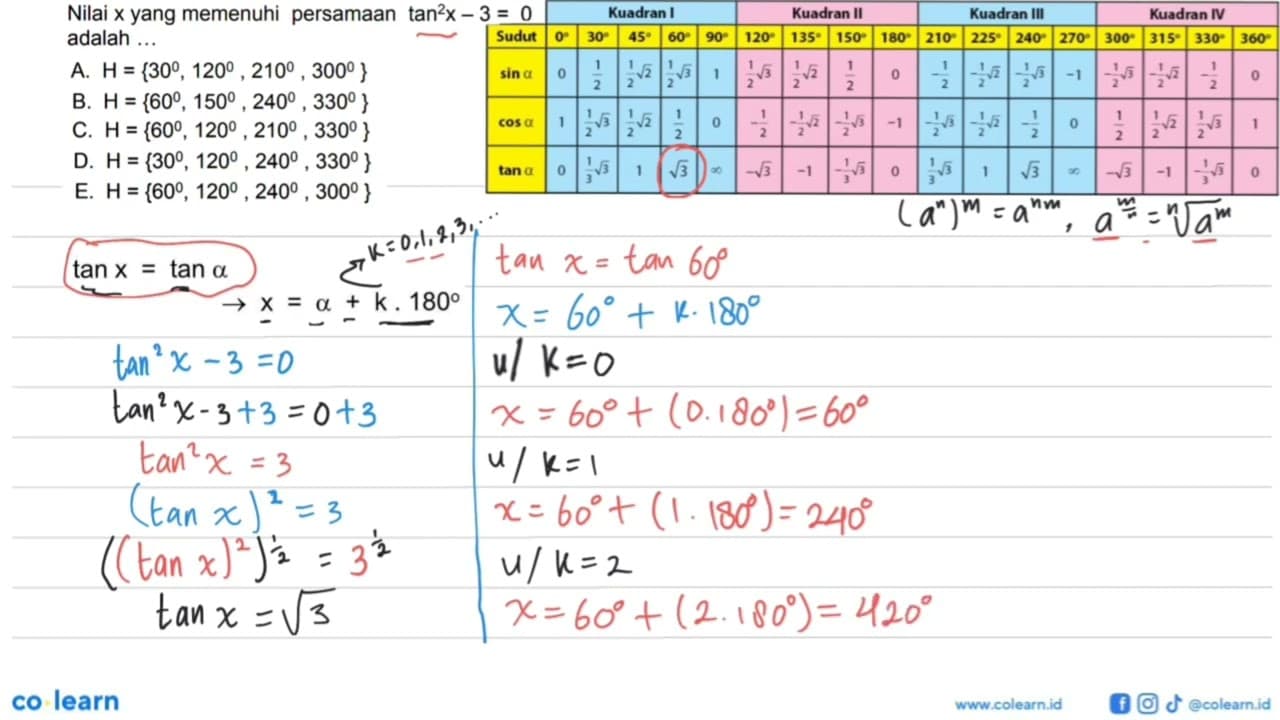 Nilai x yang memenuhi persamaan tan²x – 3 = 0
adalah ...
A. H = {30⁰, 120⁰ , 210⁰ , 300⁰ }
B. H = {60⁰, 150⁰ , 240⁰ , 330⁰ }
C. H = {60⁰, 120⁰ , 210⁰ , 330⁰ }
D. H = {30⁰, 120⁰ , 240⁰ , 330⁰ }
E. H = {60⁰, 120⁰ , 240⁰ , 300⁰ }
Kuadran I Kuadran II Kuadran III Kuadran IV
Sudut 0° 30° 45° 60° 90° 120° 135° 150° 180° 210° 225° 240° 270° 300° 315° 330° 360°
sin α 0 1/2 1/2√2 1/2√3 1 1/2√3 1/2√2 1/2 0 -1/2 -1/2√2 -1/2√3 -1 -1/2√3 -1/2√2 -1/2 0
cos α 1 1/2√3 1/2√2 1/2 0 -1/2 -1/2√2 -1/2√3 -1 -1/2√3 -1/2√2 -1/2 0 1/2 1/2√2 1/2√3 1
tan α 0 1/3√3 1 √3 ∞ -√3 -1 -1/3√3 0 1/3√3 1 √3 ∞ -√3 -1 -1/3√3 0
(aⁿ)ᵐ = aⁿᵐ, a^(m/n) = ⁿ√aᵐ
tan x = tan α
K = 0,1,2,3,...
→ x = α + k . 180⁰
tan² x - 3 = 0
tan² x - 3 + 3 = 0 + 3
tan² x = 3
(tan x)² = 3
((tan x)²)^(1/2) = 3^(1/2)
tan x = √3
tan x = tan 60°
x = 60° + K. 180°
u/ K = 0
x = 60° + (0.180°) = 60°
u/ K = 1
x = 60° + (1. 180°) = 240°
u/ K = 2
x = 60° + (2. 180°) = 420°
co learn
www.colearn.id
@colearn.id